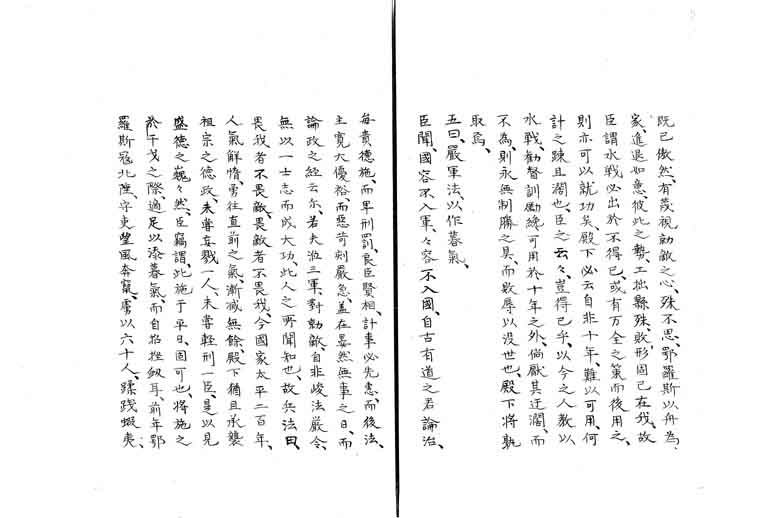 既已傲然、有蔑視勍敵之心、殊不思、鄂羅斯以舟為
家、進退如意、彼此之勢、工拙縣殊、敗形固已在我、故
臣謂水戰必出於不得已、或有万全之策而後用之、
則亦可以就功矣、殿下必云自非十年、難以可用、何
計之疎且濶也、臣之云々、豈得已乎、以今之人、教以
水戰、勸督訓勵、纔可用於十年之外、倘厭其迂濶、而
不為、則永無制勝之具、而数辱以没世也、殿下将孰
取焉、
五曰嚴軍法、以作暮氣、
臣聞、國容不入軍、々容不入國、自古有道之君論治、
毎責德施、而卑刑罰、良臣賢相、計事必先惠、而後法、
主寛大優裕、而惡苛刻嚴急、盖在晏然無事之日、而
論政之經云尔、若夫涖三軍、對勍敵、自非峻法嚴令、
無以一士志而成大功、此人之所聞知也、故兵法曰、
畏我者不畏敵、畏敵者不畏我、今國家太平二百年、
人氣解惰、勇往直前之氣、漸減無餘、殿下猶且承襲
祖宗之德政、未嘗妄戮一人、未嘗輕刑一臣、是以見
盛德之巍々然、臣竊謂、此施于平日、固可也、将施之
於干戈之際、適足以添暮氣、而自招挫衂耳、前年鄂
羅斯冦北陲、守吏望風奔竄、虜以六十人、蹂踐蝦夷、